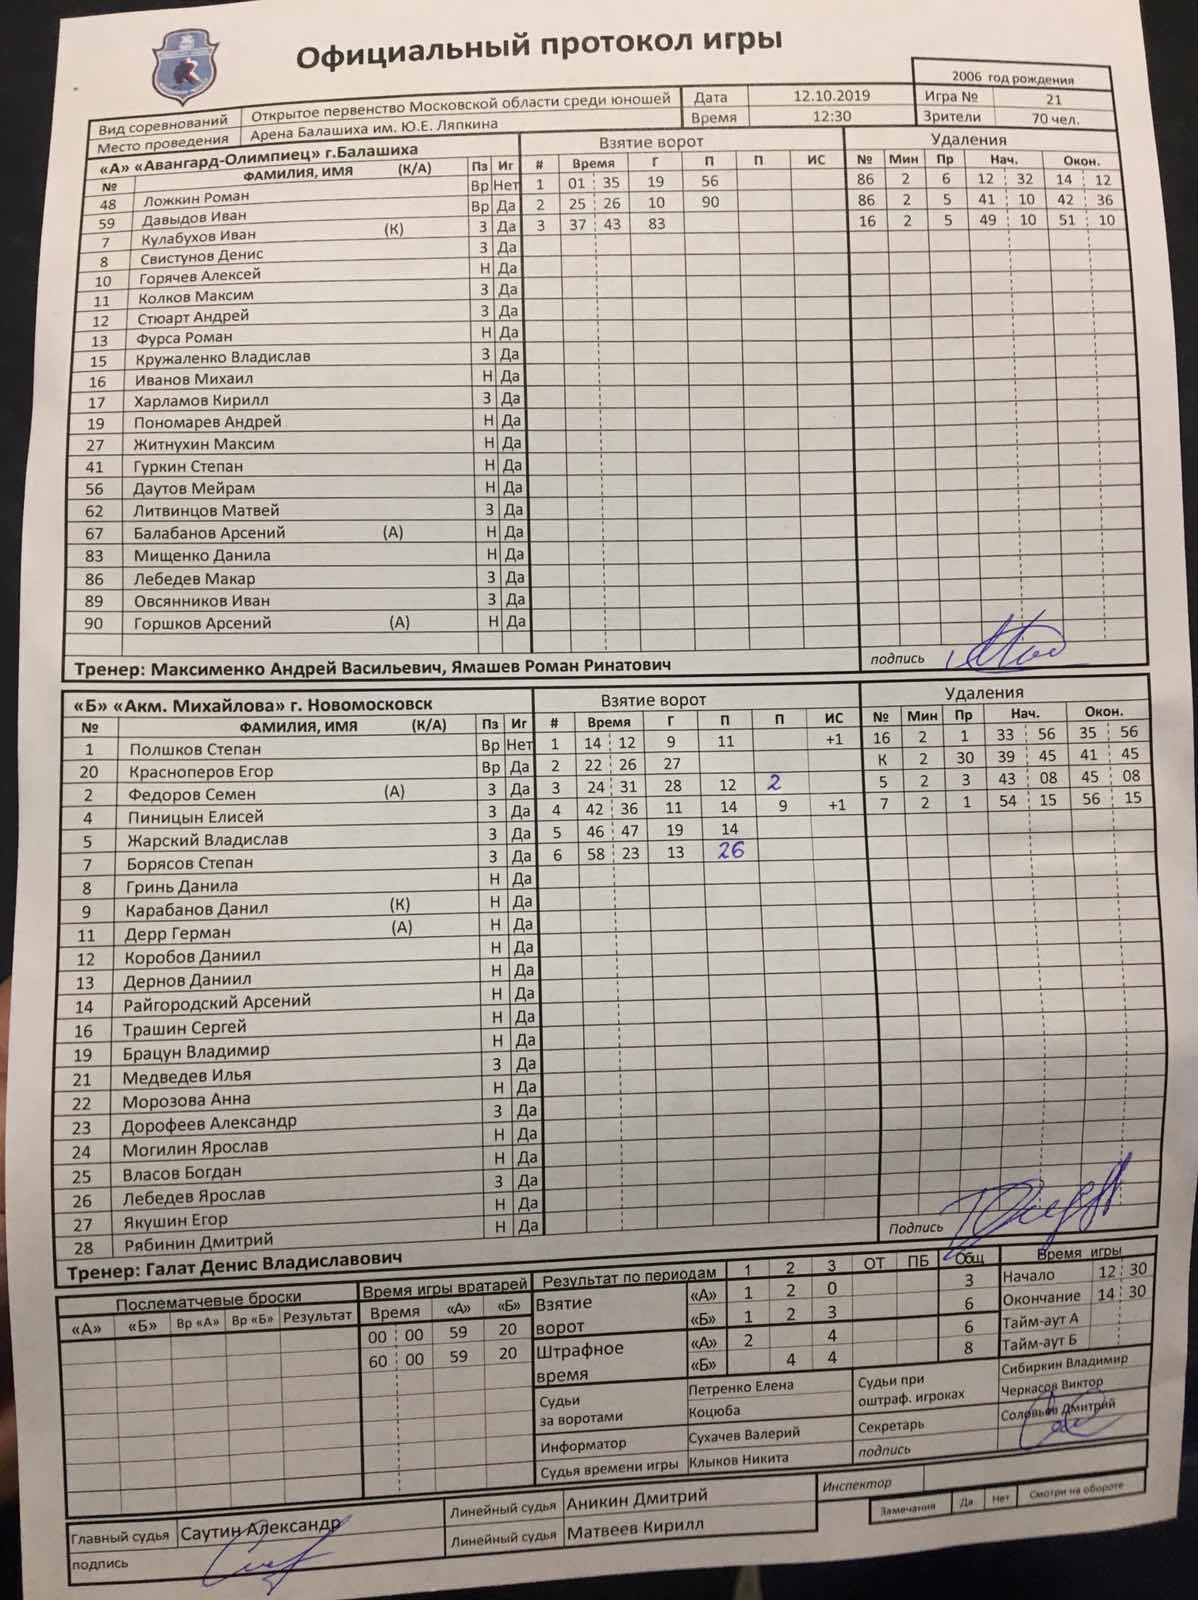 Официальный протокол игры
2006 год рождения
Вид соревнований Открытое первенство Московской области среди юношей Дата 12.10.2019 Игра № 21
Место проведения Арена Балашиха им. Ю.Е. Ляпкина Время 12:30 Зрители 70 чел.
«А» «Авангард-Олимпиец» г.Балашиха Взятие ворот Удаления
№ ФАМИЛИЯ, ИМЯ (К/А) Пз Иг # Время Г П П ИС № Мин Пр Нач. Окон.
48 Ложкин Роман Вр Нет 1 01 35 19 56 86 2 6 12 32 14 12
59 Давыдов Иван Вр Да 2 25 26 10 90 86 2 5 41 10 42 36
7 Кулабухов Иван (К) З Да 3 37 43 83 16 2 5 49 10 51 10
8 Свистунов Денис З Да
10 Горячев Алексей Н Да
11 Колков Максим З Да
12 Стюарт Андрей З Да
13 Фурса Роман Н Да
15 Кружаленко Владислав З Да
16 Иванов Михаил Н Да
17 Харламов Кирилл З Да
19 Пономарев Андрей Н Да
27 Житнухин Максим Н Да
41 Гуркин Степан Н Да
56 Даутов Мейрам Н Да
62 Литвинцов Матвей З Да
67 Балабанов Арсений (А) Н Да
83 Мищенко Данила Н Да
86 Лебедев Макар З Да
89 Овсянников Иван З Да
90 Горшков Арсений (А) Н Да
Тренер: Максименко Андрей Васильевич, Ямашев Роман Ринатович подпись
«Б» «Акм. Михайлова» г. Новомосковск Взятие ворот Удаления
№ ФАМИЛИЯ, ИМЯ (К/А) Пз Иг # Время Г П П ИС № Мин Пр Нач. Окон.
1 Полшков Степан Вр Нет 1 14 12 9 11 +1 16 2 1 33 56 35 56
20 Красноперов Егор Вр Да 2 22 26 27 К 2 30 39 45 41 45
2 Федоров Семен (А) З Да 3 24 31 28 12 2 5 2 3 43 08 45 08
4 Пиницын Елисей З Да 4 42 36 11 14 9 +1 7 2 1 54 15 56 15
5 Жарский Владислав З Да 5 46 47 19 14
7 Борясов Степан З Да 6 58 23 13 26
8 Гринь Данила Н Да
9 Карабанов Данил (К) Н Да
11 Дерр Герман (А) Н Да
12 Коробов Даниил Н Да
13 Дернов Даниил Н Да
14 Райгородский Арсений Н Да
16 Трашин Сергей Н Да
19 Брацун Владимир Н Да
21 Медведев Илья З Да
22 Морозова Анна Н Да
23 Дорофеев Александр З Да
24 Могилин Ярослав Н Да
25 Власов Богдан Н Да
26 Лебедев Ярослав З Да
27 Якушин Егор Н Да
28 Рябинин Дмитрий Н Да
Тренер: Галат Денис Владиславович Подпись
Послематчевые броски Время игры вратарей Результат по периодам 1 2 3 ОТ ПБ Общ Время игры
«А» «Б» Вр «А» Вр «Б» Результат Время «А» «Б» Взятие ворот «А» 1 2 0 3 Начало 12 30
00 00 59 20 «Б» 1 2 3 6 Окончание 14 30
60 00 59 20 Штрафное время «А» 2 4 6 Тайм-аут А
«Б» 4 4 8 Тайм-аут Б
Судьи за воротами Петренко Елена Судьи при оштраф. игроках Сибиркин Владимир
Коцюба Черкасов Виктор
Информатор Сухачев Валерий Секретарь Соловьев Дмитрий
Судья времени игры Клыков Никита подпись
Главный судья Саутин Александр Линейный судья Аникин Дмитрий Инспектор
подпись Линейный судья Матвеев Кирилл Замечания Да Нет Смотри на обороте